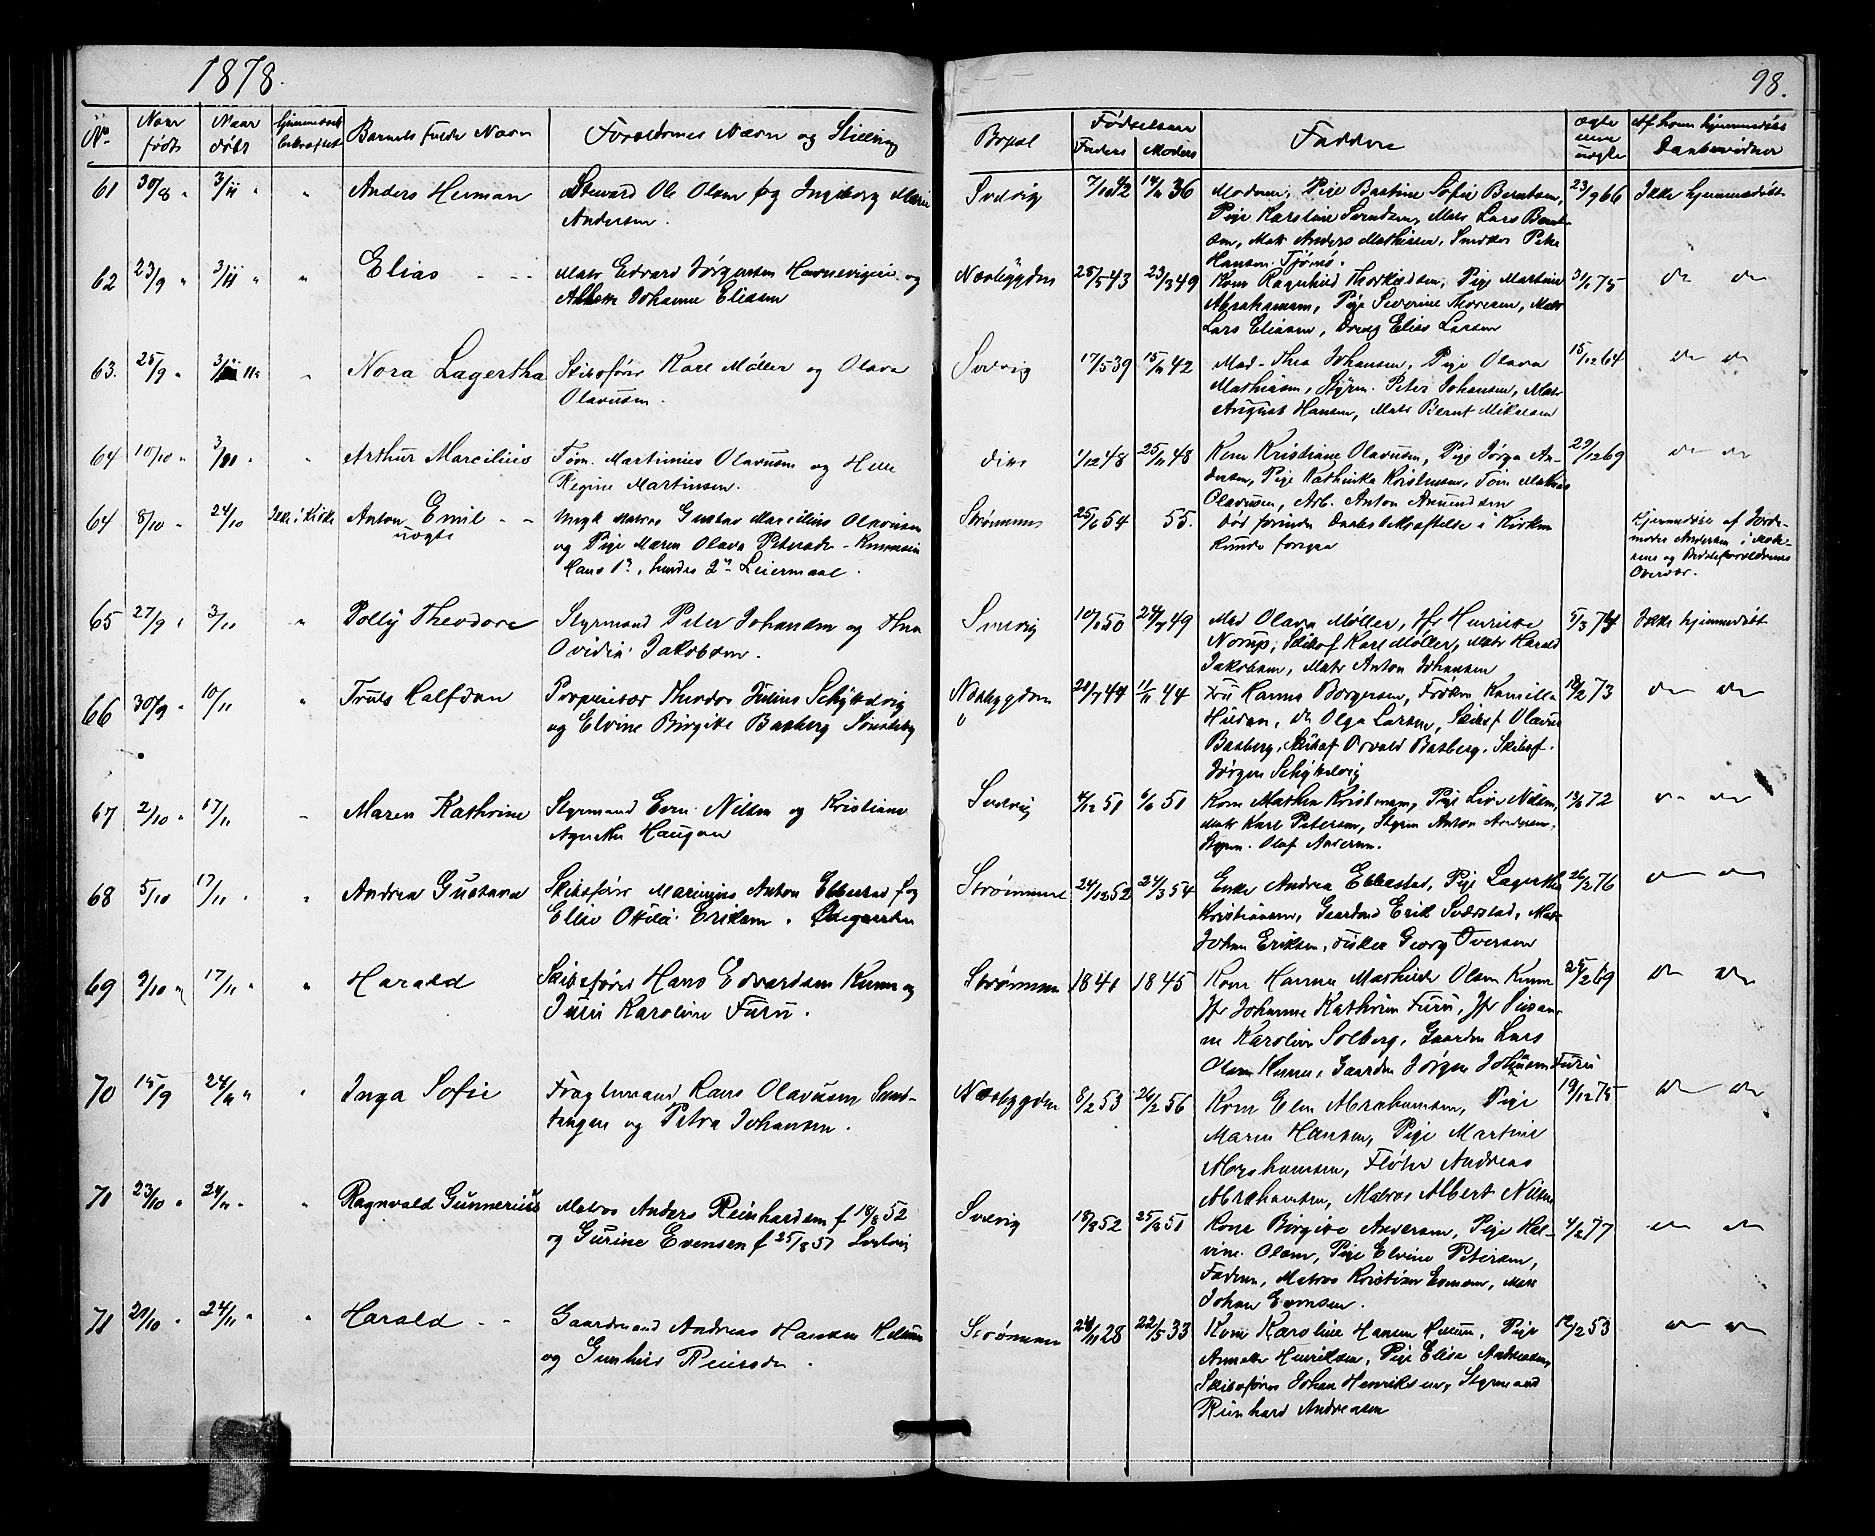 1878.
98.
No. Naar født Naar døbt Hjemmedaab bekræftet Barnets fulde Navn Forældrenes Navn og Stilling Bopæl Fødselsaar Faders Moders Faddere ægte uægte Af hvem hjemmedøbt Daabsvidner
61 30/8 " 3/11 " " Anders Herman Steward Ole Olsen og Ingeborg Marie
Andersen.
Svelvig 7/10 42 14/11 36 Moderen, Pige Bastine Sofie Berntsen, 23/9 66 Ikke hjemmedøbt
Pige Karoline Svendsen, Mats Lars Bernt-
sen, Matr Anders Mathisen, Peter
Hansen Tjømø.
62 23/9 " 3/11 " " Elias - - - Matr Edvard Jørgensen Havnevigen og
Johanne Eliasen
Næsbygden 25/5 43 23/3 49 Kone Ragnhild Thorkildsen, Pige Martine 31/1 75 do do
Abrahamsen, Pige Severine Thoresen, Matr
Lars Eliasen, Dreng Elias Larsen
63. 25/9 " 3/11 " Nora Lagertha Skibsfører Karl Møller og Olava
Olavusen.
Svelvig 17/5 39 15/11 42 Mad. Thea Johansen, Pige Olava 15/12 64 do do
Mathisen, Styrm. Peter Johansen, Matr
August Hansen, Mats Bernt Mikelsen
64 10/10 " 3/11 " " Arthur Marcilius Tøm. Martinius Olavusen og Helle
Regine Martinsen.
dito 1/12 48 25/11 48 Kone Kristiane Olavusen, Pige Jørga An- 29/12 69 do do
dersen, Pige Kathinka Kristensen, Tøm Mathias
Olavusen, Arb. Anton Amundsen
64 8/10 " 24/10 Ikke i Kirke Anton Emil - -
uægte
Ungk Matros Gustav Marcilius Olavusen
og Pige Maren Olava Petersdr
Hans 1ste, hendes 2det Leiermaal.
Strømmen 25/6 54 55. død forinden Daabs Bekræftelse i Kirken
kunde foregaa
Hjemmedøbt af Jorde-
moder Andersen i Mode-
rens og Bedsteforældrenes
Overvær.
65 27/9 " 3/11 " Polly Theodora Styrmand Peter Johansen og Thea
Ovidia Jakobsen.
Svelvig 10/1 50 24/7 49 Mad Olava Møller, Jfr Henriette 5/3 74 Ikke hjemmedøbt
Norup, Skibsf Karl Møller, Matr Harald
Jakobsen, Matr Anton Johansen
66 30/9 " 10/11 " Truls Halfdan Proprietær Theodor Julius Schyttelvig
og Elvine Birgitte Basberg
Næsbygden 20/7 44 11/11 44 Fru Hanna Borgersen, Frøken Kamilla 18/2 73 do do
do Olga Larsen, Skibsf Olavus
Basberg, Skibsf Osvald Basberg, Skibsf.
Jørgen Schyttelvig
67 2/10 " 17/11 " Maren Kathrine Styrmand Even Nilsen og Kristiane
Agnethe Haugan
Svelvig 4/12 51 6/6 51 Kone Mathea Kristensen, Pige Nilsen, 13/6 72 do do
Matr Karl Petersen, Styrm Anton Andersen,
Styrm. Olaf Andersen.
68 5/10 17/11 " " Andrea Gustava Skibsfører Marinius Anton Ebbestad og
Ellen Otilie Eriksen. Ødegaarden
Strømmen 24/12 52 24/3 54 Enke Andrea Ebbestad, Pige Lagertha 26/2 76 do do
Kristiansen, Gaardmd Erik Sværstad, Matr
Johan Eriksen, Fisker Georg Iversen
69 2/10 " 17/11 " " Harald Skibsfører Hans Edvardsen Knem og
Juri Karoline Furu.
Strømmen 1841 1845 Kone Hanna Mathilde Olsen Knem 25/2 69 do do
Jfr Johanne Kathrine Furu, Jfr Susan-
ne Karoline Solberg, Gaardm Lars
Olsen Knem, Gaardm Jørgen Johansen Furu
70 15/9 24/11 " " Inga Sofie Fragtemand Hans Olavusen Sand-
tangen og Petra Johansen.
Næsbygden 8/2 53 26/2 56 Kone Elen Abrahamsen, Pige 19/12 75 do do
Maren Hansen, Pige Martine
Abrahamsen, Fløter Andreas
Abrahamsen, Matros Albert Nilsen
71 23/10 " 24/11 " " Ragnvald Gunnerius Matros Anders Reinhardsen f 18/8 52
og Gurine Evensen f 25/8 51 Svelvig
Svelvig 18/8 52 25/8 51 Kone Birgitte Andersen, Pige Hel- 4/2 77 do do
vine Olsen, Pige Elvine Petersen,
Faderen, Matros Kristian Evensen, Matr
Johan Evensen.
71 21/10 " 24/11 " " Harald - - Gaardmand Andreas Hansen Hellum
og Gunhild Reiersdr.
Strømmen 24/11 28 22/5 33 Kone Karoline Hansen Hellum, Pige 12/2 53 do do
Annette Henriksen, Pige Elise Andreasen,
Skibsfører Johan Henriksen, Styrmand
Reinhard Andreasen